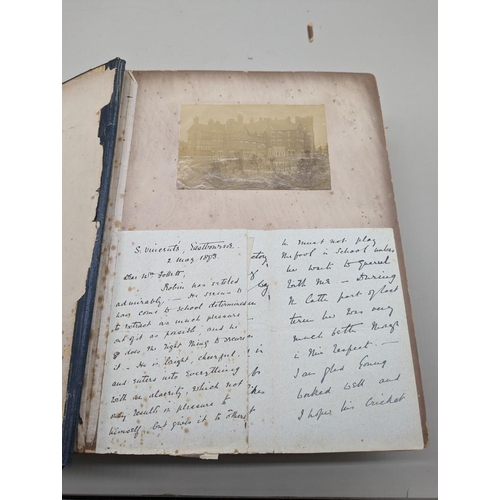 S. Vincent's, Eastbourne.
2 May 1893
Dear Mrs Follett,
Robin has settled
admirably. — He seems to
have come to school determined
to extract as much pleasure
out of it as possible, and he
does the right thing to secure
it. — He is bright, cheerful,
and enters into everything
with an alacrity, which not
only results in pleasure to
himself, but gives it to others
ctory
of
in
he must not play
the fool in School unless
he wants to quarrel
with me — During
the latter part of last
term he was very
much better
in this respect. —
I am glad Young
worked well and
I hope his Cricket